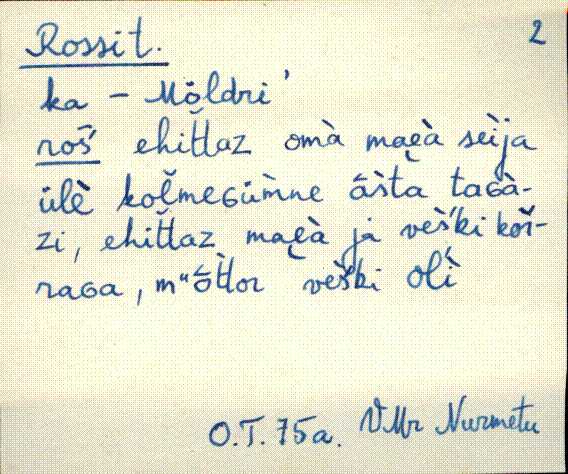 Rossit. 2
ka – Möldri'
roš́ ehit̆t̆az omà maɛà sèi̯ja
ülè kol̆meɢüm̀ne āšta taɢà-
zi, ehit̆t̆az maɛà ja vèški kor̆-
raɢa, mᵘȫt̀t̀or vèški oĺì
O.T. 75a. VMr Nurmetu